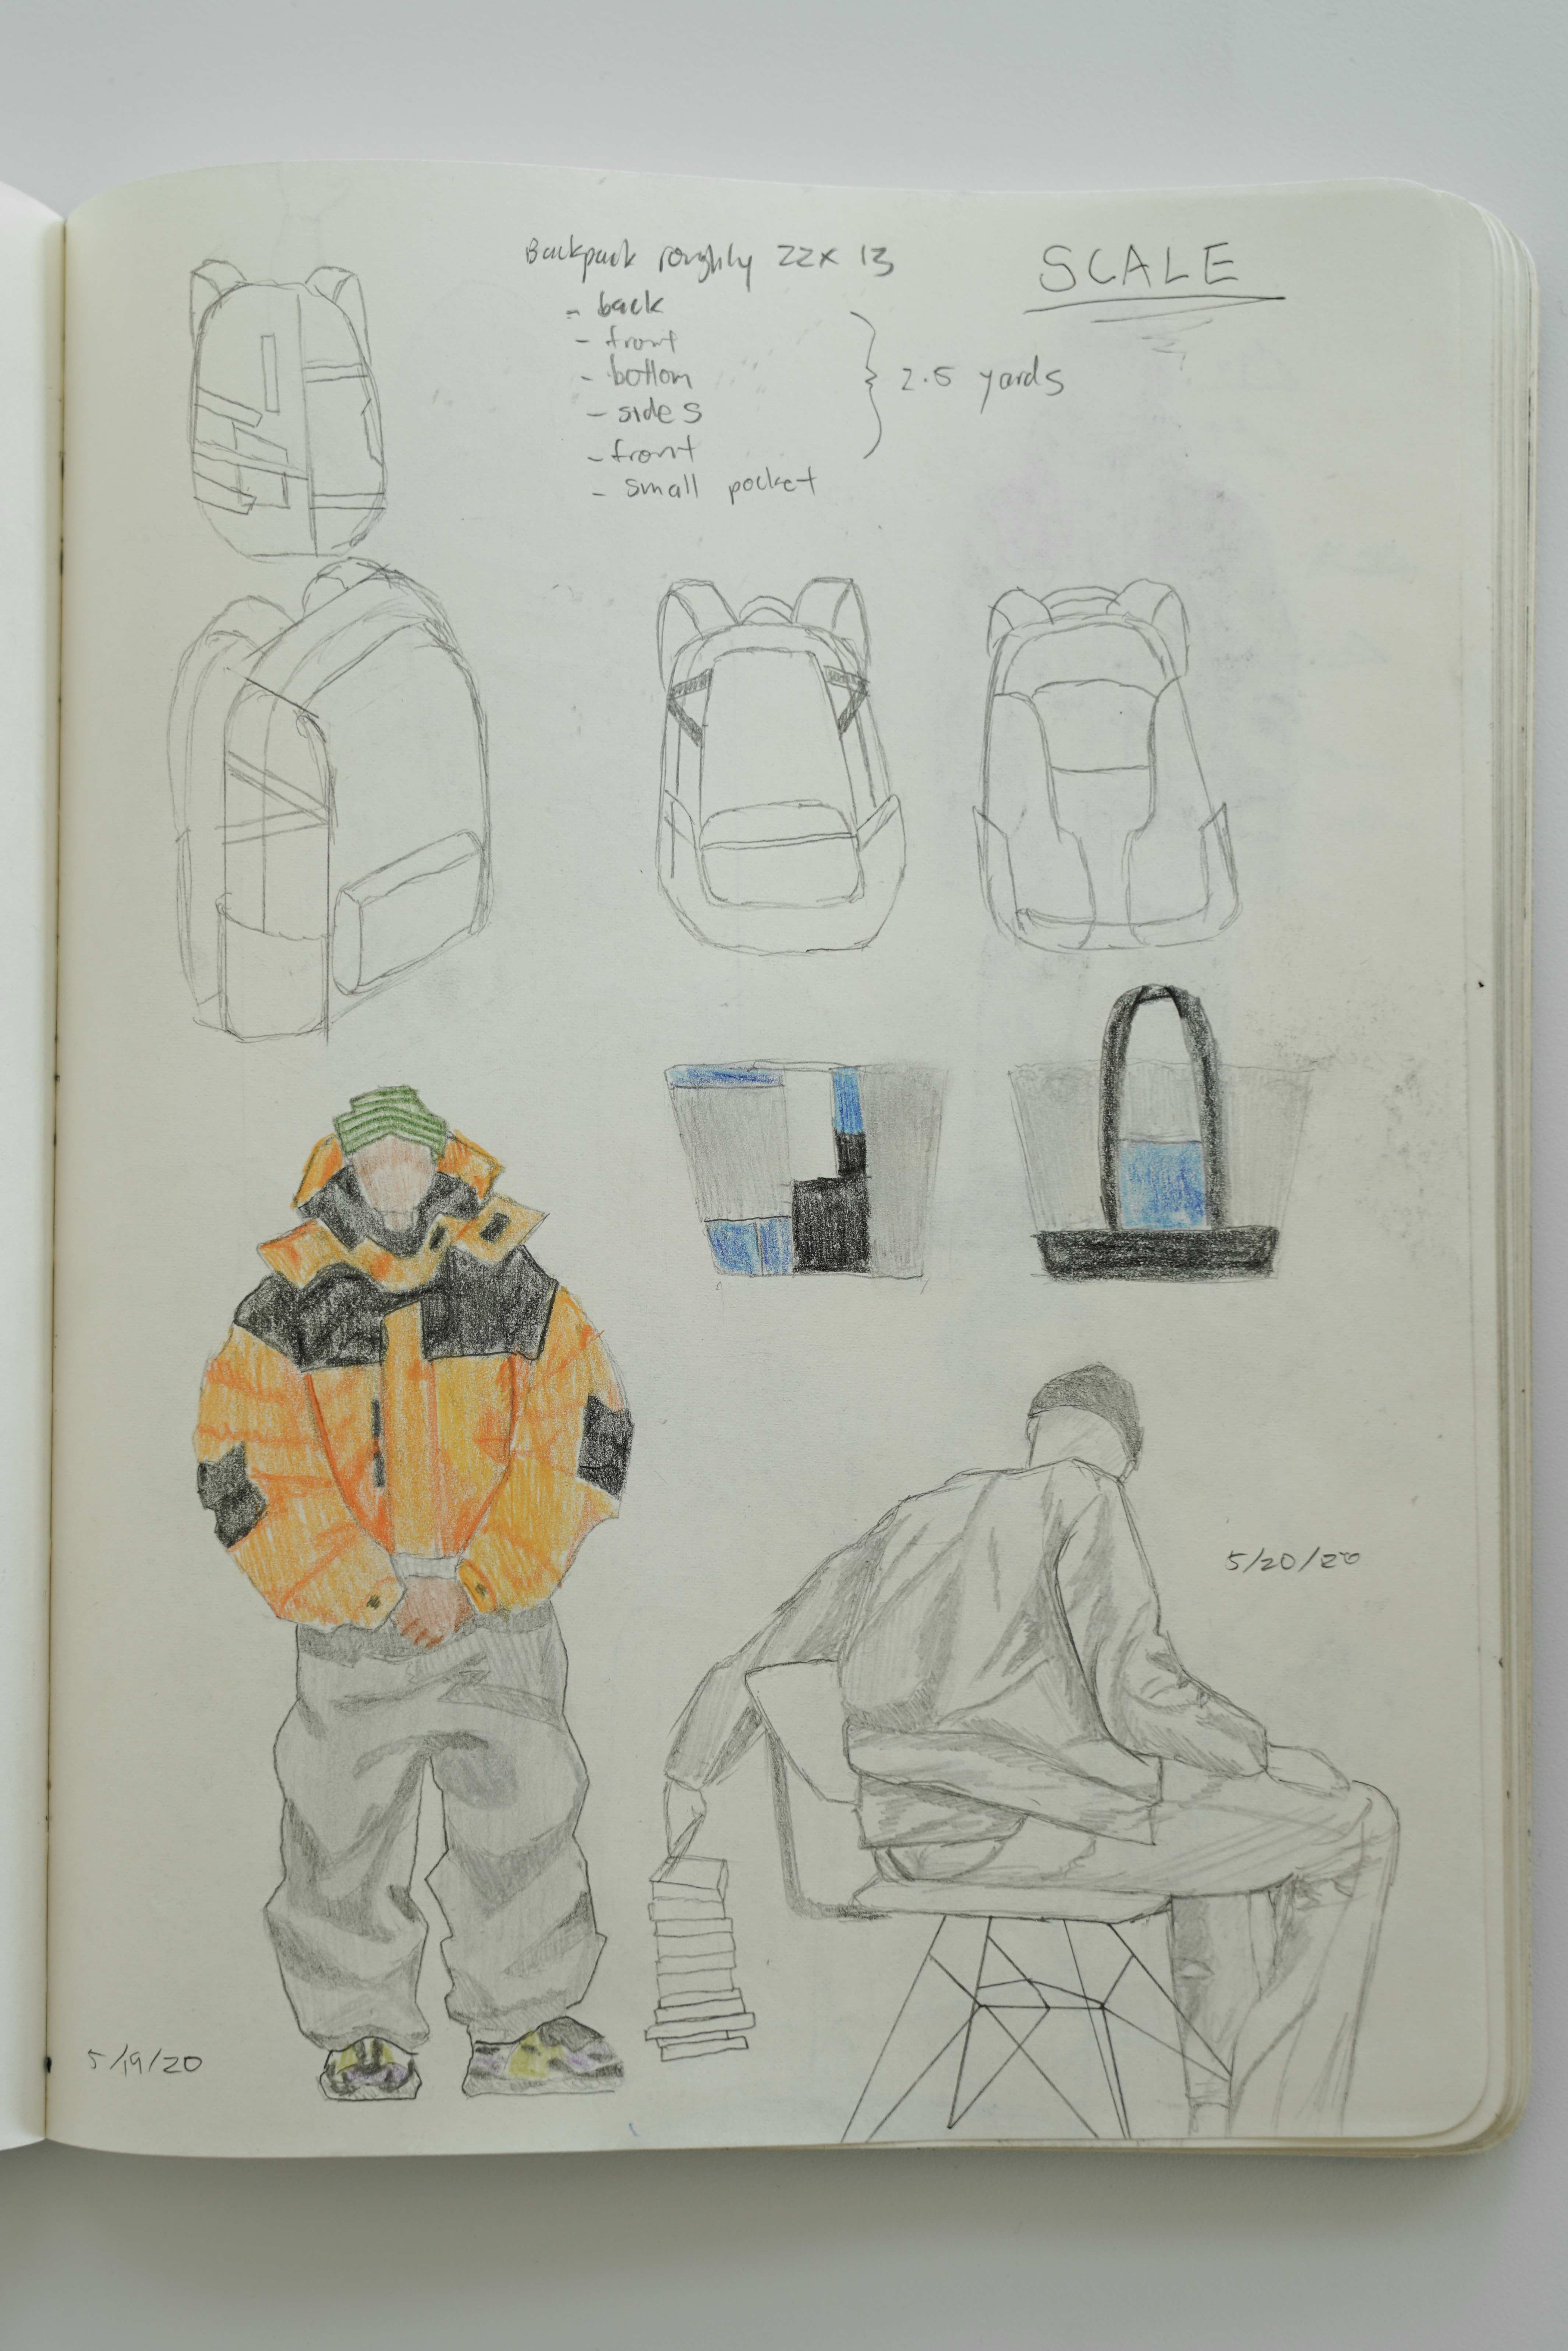 Backpack roughly 22x 13
- back
- front
- bottom
- sides
- front
- small pocket
2.5 yards
SCALE
5/20/20
5/19/20